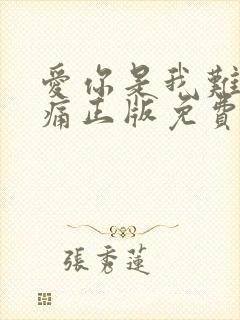 愛你是我難
痛正版免費
張秀蓮